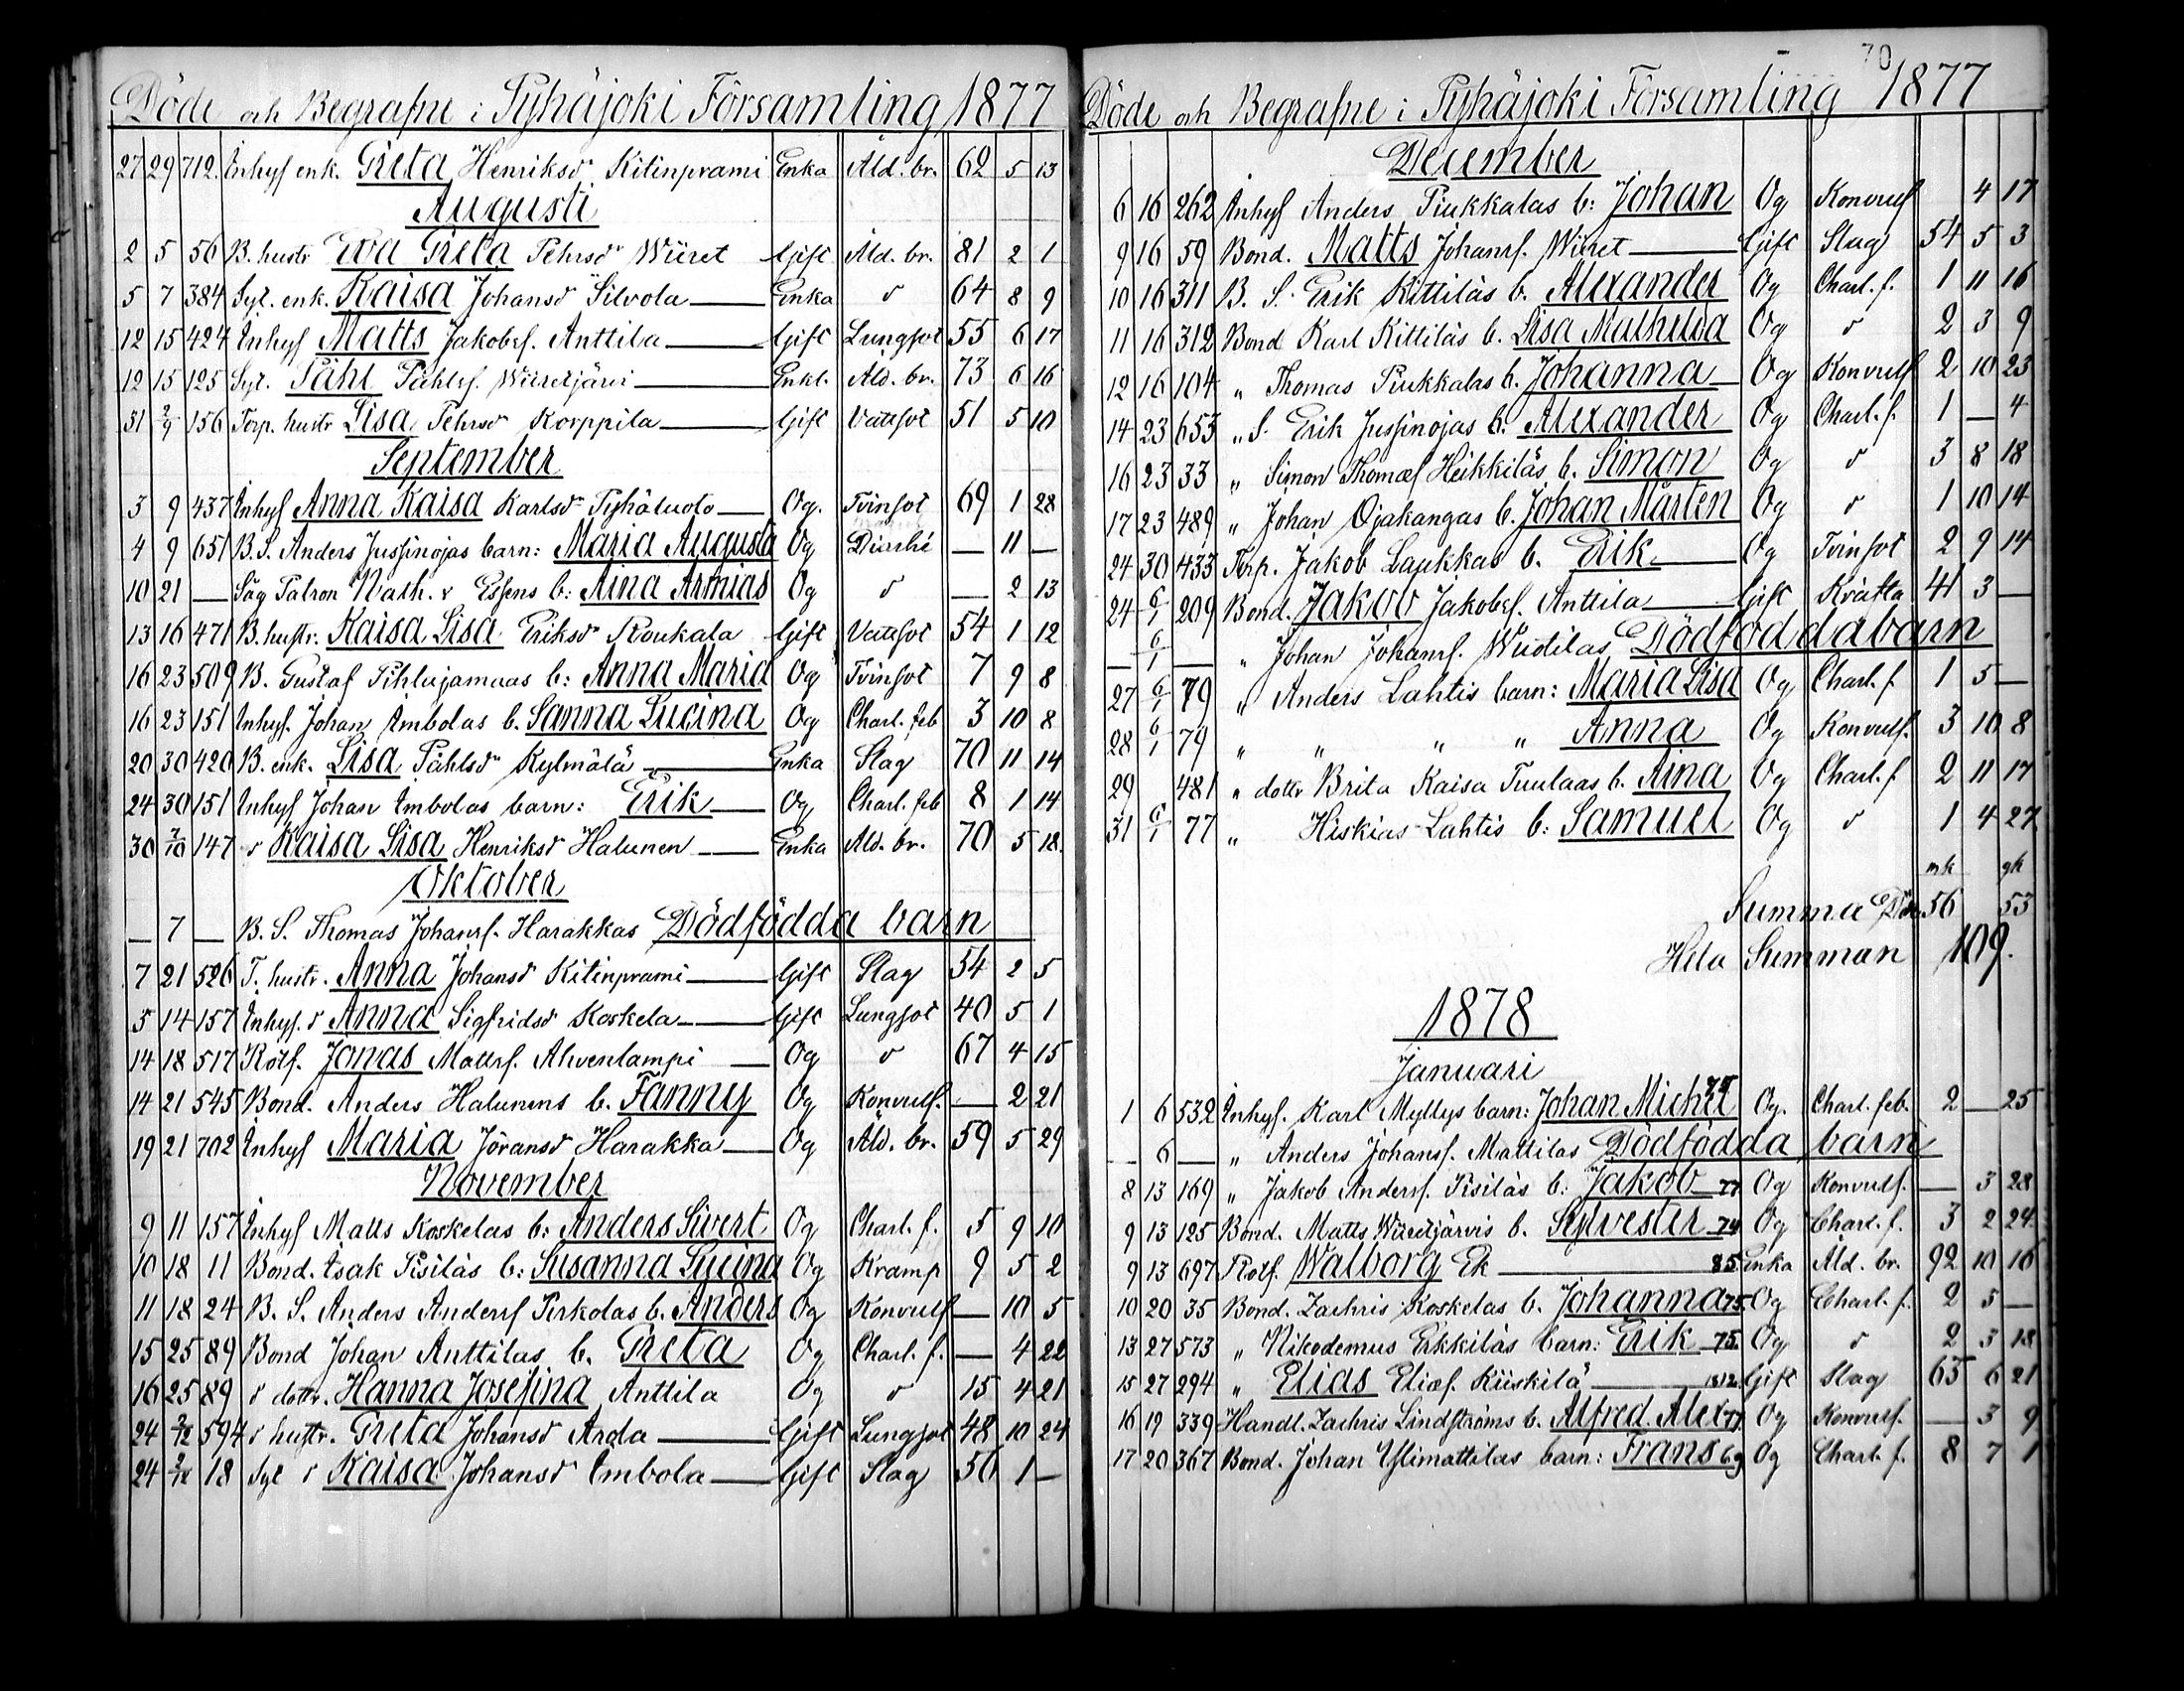 Döde och Begrafne i Pyhäjoki Församling 1877
27 29 712. Inhys enk. Greta Henriksdr Kitinprami Enka Åld. br. 62 5 13
Augusti
2 5 56 B. hustr Eva Greta Pehrsdr Wiiret Gift Åld. br. 81 2 1
5 7 384 Syt. enk. Kaisa Johansdr Silvola Enka d 64 8 9
12 15 424 Inhys Matts Jakobsf. Anttila Gift Lungsot 55 6 17
12 15 125 Syt. Påhl Påhlsf. Wiiretjärvi Enkl. Åld. br. 73 6 16
31 2/9 156 Torp. hustr Lisa Pehrsdr Korppila Gift Vattsot 51 5 10
September
3 9 437 Inhys Anna Kaisa Karlsdr Pyhäluoto Og. Tvinsot 69 1 28
4 9 651 B. S. Anders Jussinojas barn: Maria Augusta Og Diarrhé — 11 —
10 21 — Såg Patron Nath. v Essens b: Aina Armias Og d — 2 13
13 16 471 B. hustr. Kaisa Lisa Eriksdr Koukala Gift Vattsot 54 1 12
16 23 509 B. Gustaf Pihlajamaas b: Anna Maria Og Tvinsot 7 9 8
16 23 151 Inhys. Johan Imbolas b. Sanna Lucina Og Charl. feb 3 10 8
20 30 420 B. enk. Lisa Påhlsdr Kylmälä Enka Slag 70 11 14
24 30 151 Inhys Johan Imbolas barn: Erik Og Charl. feb 8 1 14
30 7/10 147 d Kaisa Lisa Henriksdr Halunen Enka Åld. br. 70 5 18.
Oktober
— 7 — B. S. Thomas Johansf. Harakkas Dödfödda barn
7 21 526 T. hustr. Anna Johansdr Kitinprami Gift Slag 54 2 5
5 14 157 Inhys. d Anna Sigfridsdr Koskela Gift Lungsot 40 5 1
14 18 517 Rotf. Jonas Mattsf. Ahvenlampi Og d 67 4 15
14 21 545 Bond. Anders Halunens b. Fanny Og Konvuls. — 2 21
19 21 702 Inhys Maria Jöransdr Harakka Og Åld. br. 59 5 29
November
9 11 157 Inhys Matts Koskelas b: Anders Sivert Og Charl. f. 5 9 10
10 18 11 Bond. Isak Pisiläs b: Susanna Lucina Og Kramp 9 5 2
11 18 24 B. S. Anders Andersf Pirkolas b. Anders Og Konvuls — 10 5
15 25 89 Bond Johan Anttilas b. Greta Og Charl. f. — 4 22
16 25 89 d dottr. Hanna Josefina Anttila Og d 15 4 21
24 2/12 594 d hustr. Greta Johansdr Anda Gift Lungsot 48 10 24
24 2/12 18 Syt d Kaisa Johansdr Imbola Gift Slag 56 1 —
70
Döde och Begrafne i Pyhäjoki Församling 1877
December
6 16 262 Inhys Anders Piukkalas b: Johan Og Konvuls 4 17
9 16 59 Bond. Matts Johansf. Wiiret Gift Slag 54 5 3
10 16 311 B. S. Erik Kittiläs b. Alexander Og Charl. f. 1 11 16
11 16 312 Bond Karl Kittiläs b. Lisa Mathilda Og d 2 3 9
12 16 104 " Thomas Piukkalas b. Johanna Og Konvuls 2 10 23
14 23 653 " S. Erik Jussinojas b. Alexander Og Charl. f. 1 — 4
16 23 33 " Simon Thomasf Heikkiläs b. Simon Og d 3 8 18
17 23 489 " Johan Ojakangas b. Johan Mårten Og d 1 10 14
24 30 433 Torp. Jakob Laukkas b. Erik Og Tvinsot 2 9 14
24 6/1 209 Bond. Jakob Jakobsf. Anttila Gift Kräfta 41 3 —
— 6/1 — " Johan Johansf. Wiotilas Dödfödda barn
27 6/1 79 " Anders Lahtis barn: Maria Lisa Og Charl. f 1 5 —
28 6/1 79 " " " " Anna Og Konvuls. 3 10 8
29 481 " dottr Brita Kaisa Tuulaas b. Aina Og Charl. f 2 11 17
31 6/1 77 " Hiskias Lahtis b: Samuel Og d 1 4 27
mk qk
Summa Döde 56 53
Hela Summan 109.
1878
Januari
1 6 532 Inhys. Karl Myllys barn: Johan Michel 75 Og. Charl. feb. 2 — 25
— 6 — " Anders Johansf. Mattilas Dödfödda barn
8 13 169 " Jakob Andersf. Pisiläs b: Jakob 77 Og Konvuls. — 3 28
9 13 125 Bond. Matts Wiiretjärvis b. Sylvester 74 Og Charl. f. 3 2 24
9 13 697 Rotf. Walborg Ek 85 Enka Åld. br. 92 10 16
10 20 35 Bond. Zachris Koskelas b. Johanna 75. Og Charl. f. 2 5 —
13 27 573 " Nikodemus Erkkiläs barn: Erik 75. Og d 2 3 18
15 27 294 " Elias Eliasf. Kiiskilä 1812. Gift Slag 65 6 21
16 19 339 Handl. Zachris Lindströms b. Alfred Alex 77. Og Konvuls. — 3 9
17 20 367 Bond. Johan Ylimattilas barn: Frans 69 Og Charl. f. 8 7 1